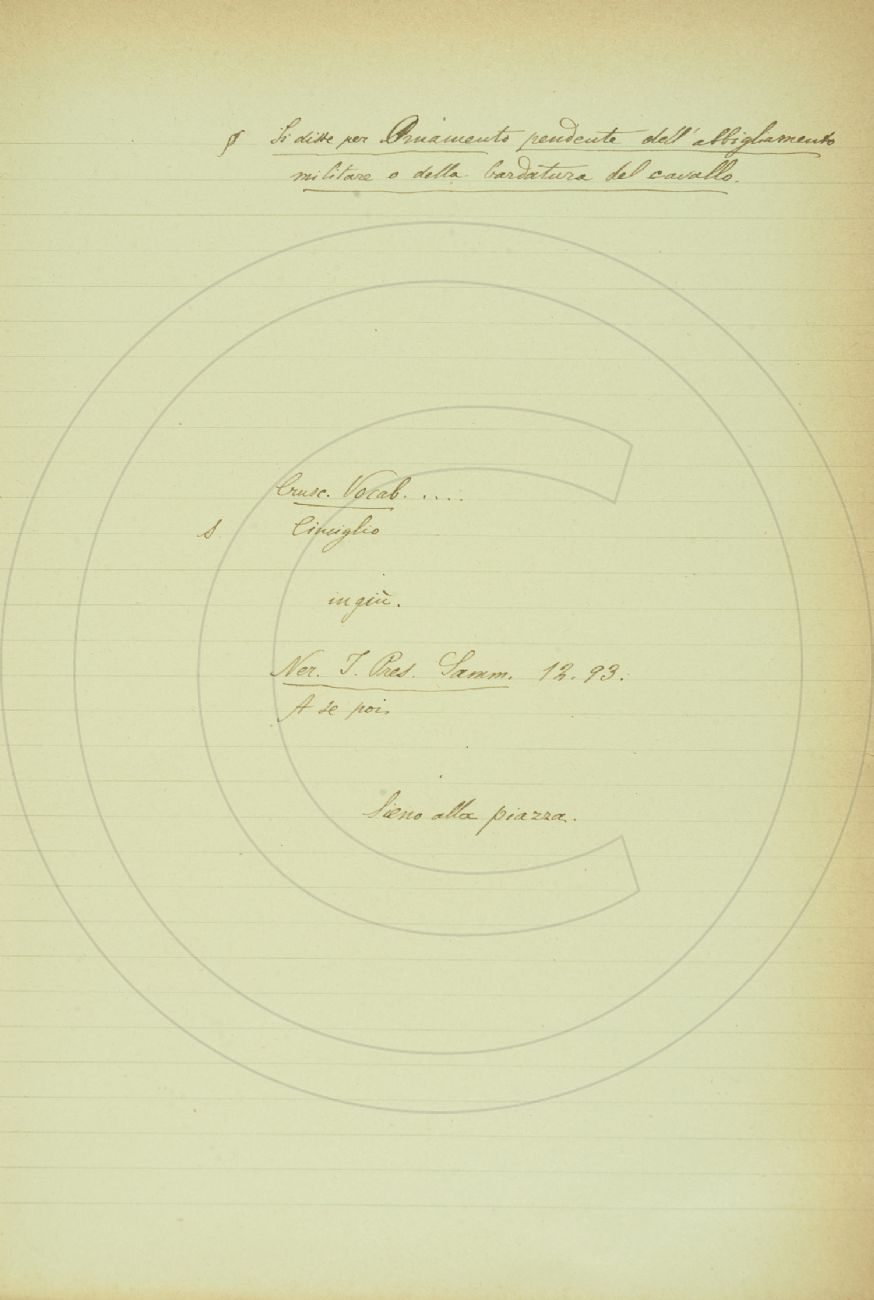 § Si disse per Ornamento pendente dell'abbigliamento
militare o della bardatura del cavallo.
Crusc. Vocab. ....
S. Cinciglio
in giù.
Ner. I. Pres. Samm. 12. 93.
A se poi
Sieno alla piazza.